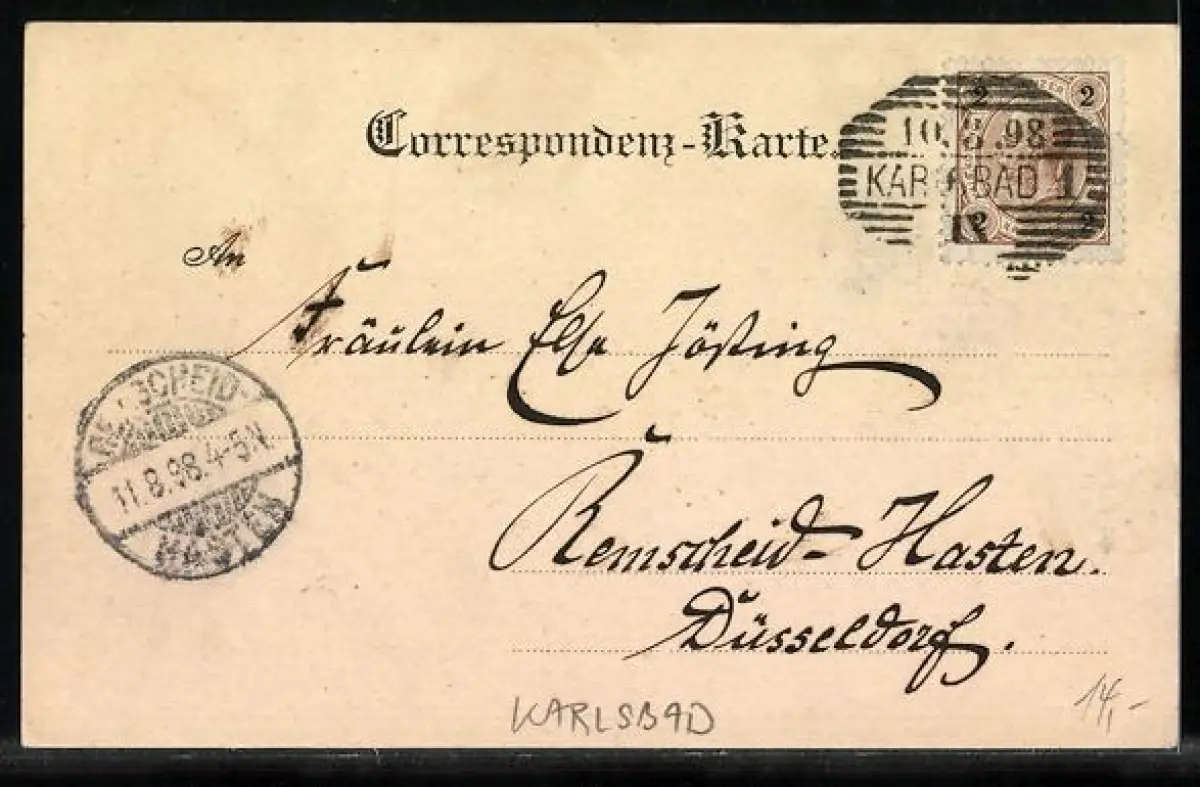 Correspondenz-Karte.
2 2
10.8.98
KARLSBAD 1
2 2
An
Fräulein Else Jößting
REMSCHEID-
11.8.98.4-5N.
HASTEN
Remscheid-Hasten.
Düsseldorf.
KARLSBAD
14,-